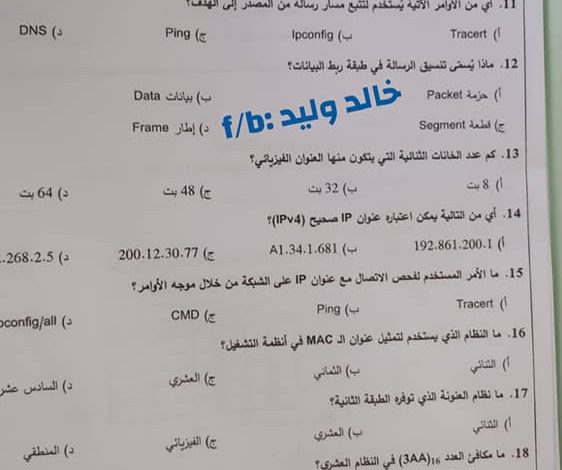 11. أي من الأوامر الآتية يُستخدم لتتبع مسار رسالة من المصدر إلى الهدف؟
أ) Tracert ب) Ipconfig ج) Ping د) DNS
12. ماذا يُسمّى تنسيق الرسالة في طبقة ربط البيانات؟
أ) حزمة Packet ب) بيانات Data
ج) قطعة Segment د) إطار Frame
خالد وليد :f/b
13. كم عدد الخانات الثنائية التي يتكون منها العنوان الفيزيائي؟
أ) 8 بت ب) 32 بت ج) 48 بت د) 64 بت
14. أي من التالية يمكن اعتباره عنوان IP صحيح (IPv4)؟
أ) 192.861.200.1 ب) A1.34.1.681 ج) 200.12.30.77 د) .268.2.5
15. ما الأمر المستخدم لفحص الاتصال مع عنوان IP على الشبكة من خلال موجه الأوامر؟
أ) Tracert ب) Ping ج) CMD د) pconfig/all
16. ما النظام الذي يستخدم لتمثيل عنوان الـ MAC في أنظمة التشغيل؟
أ) الثنائي ب) الثماني ج) العشري د) السادس عشر
17. ما نظام العنونة الذي توفره الطبقة الثانية؟
أ) الثنائي ب) العشري ج) الفيزيائي د) المنطقي
18. ما مكافئ العدد (3AA)16 في النظام العشري؟